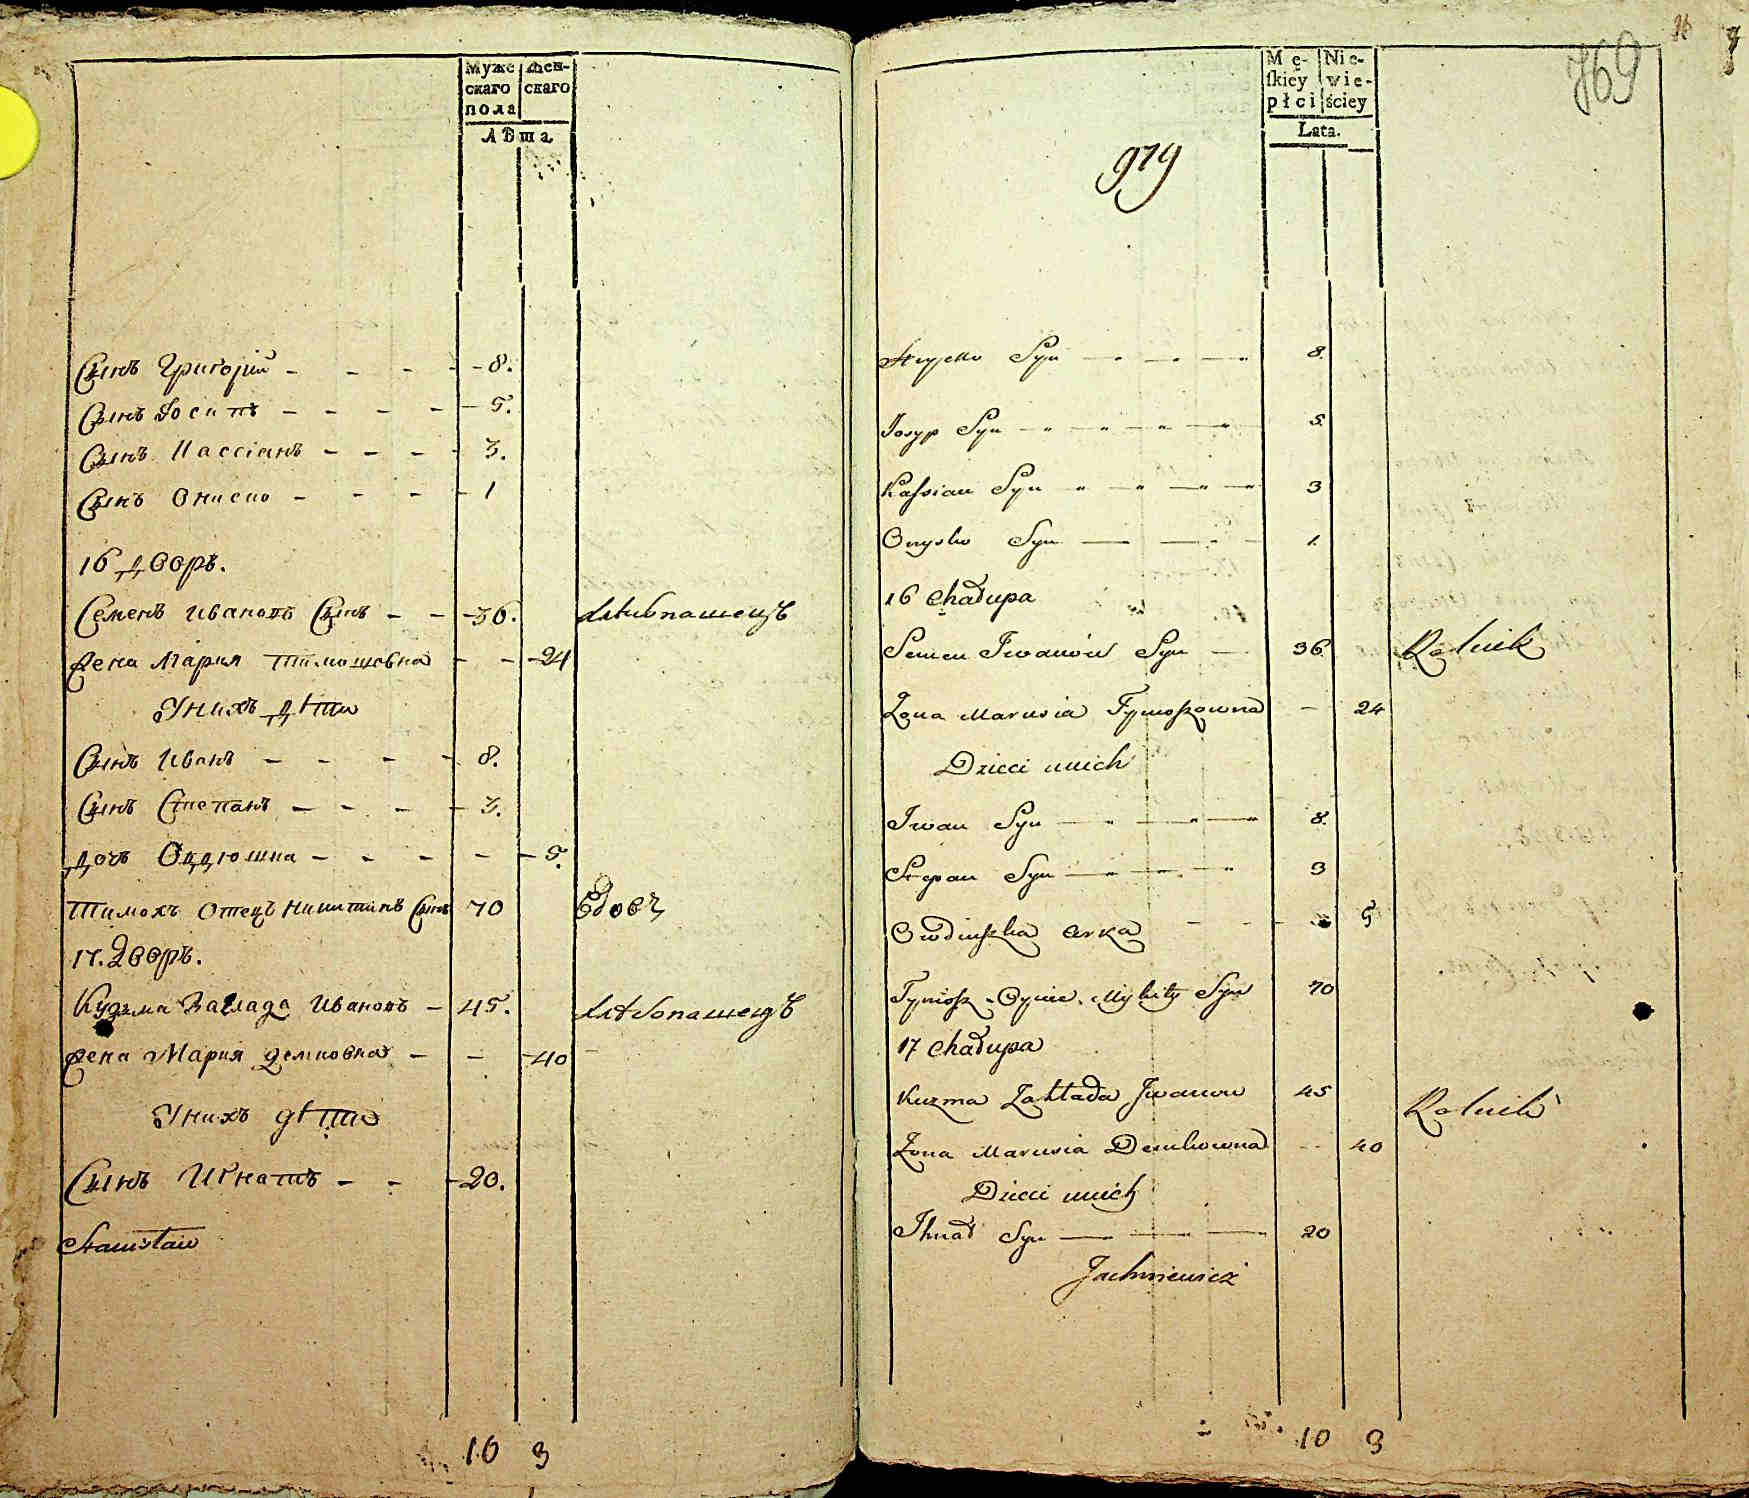 Муже скаго пола
Жен- скаго
Лѣта
Сынъ Григорій - - - - 8.
Сынъ Іосипъ - - - - 5.
Сынъ Кассіанъ - - - - 3.
СынъОниско - - - - 1
16 дворъ.
Семенъ Ивановъ Сынъ - - 36. Хлѣбопашецъ
Жена Мария Тимошовна - - 24
У нихъ дѣти
Сынъ Иванъ - - - - 8.
Сынъ Степанъ - - - - 3.
дочь Овдюшка - - - - - 5.
Тимохъ Отецъ Никитинъ Сынъ 70 Вдовъ
17. Дворъ.
Кузма Заклада Ивановъ - 45. Хлѣбопашецъ
Жена Мария Демковна - - 40
У нихъ дѣти
Сынъ Игнатъ - - - 20.
Stanisław
10 3
96
769
Mę- skiey płci
Nie- wie- ściey
Lata.
979
Hryćko Syn 8.
Josyp Syn 5
Kassian Syn 3
Onysko Syn 1.
16 Chałupa
Semen Iwanow Syn 36 Rolnik
Żona Marusia Tymoszowna - 24
Dzieci u nich
Iwan Syn 8.
Stepan Syn 3
Owdiuszka Crka 5
Tymosz Oyciec Mykity Syn 70
17 Chałupa
Kuzma Zakłada Iwanow 45 Rolnik
Żona Marusia Demkowna - 40
Dzieci u nich
Ihnat Syn 20
Jachniewicz
10 3